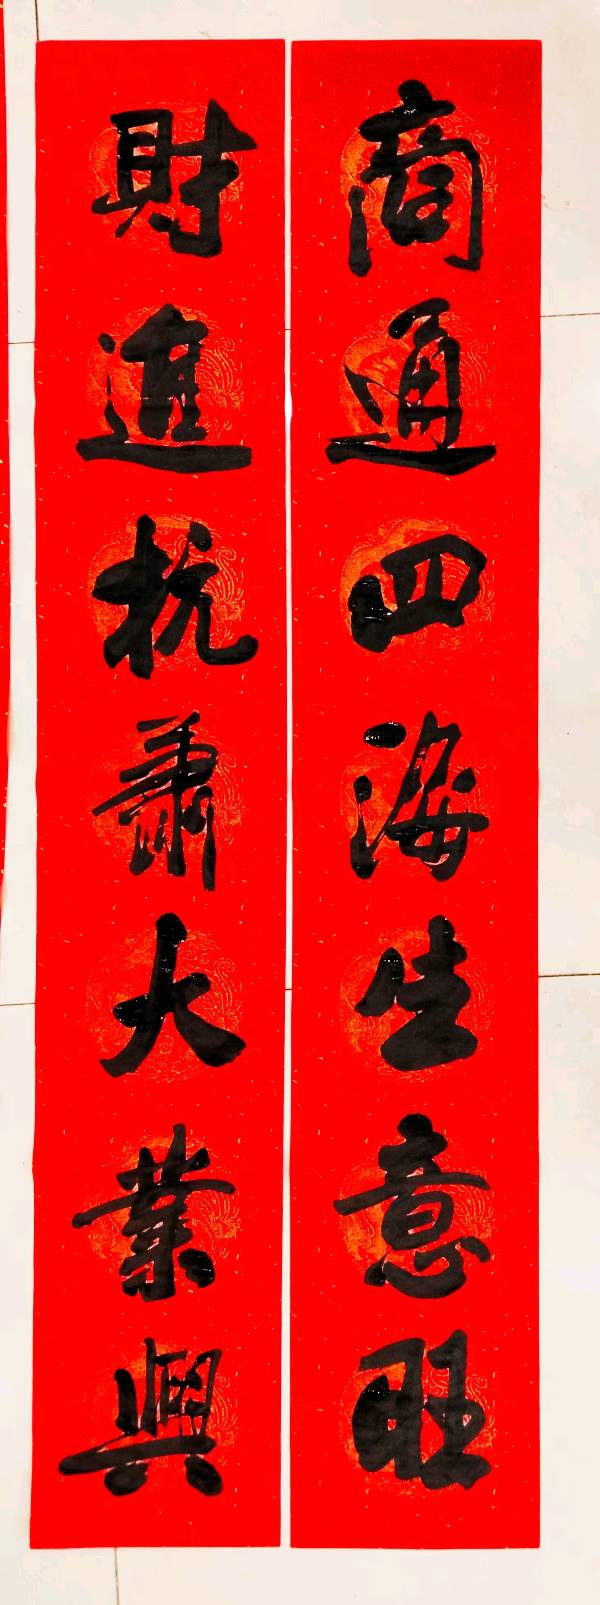 商通四海生意旺
財進杭蕭大業興